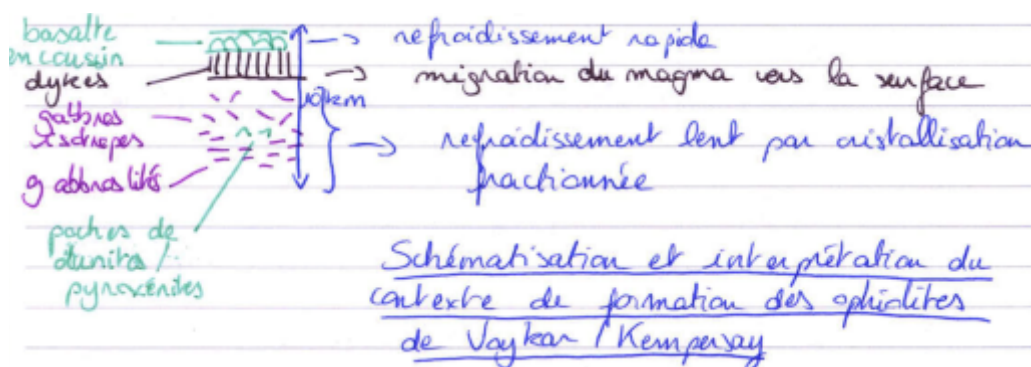 basalte
en coussin
dykes
gabbros
isotropes
gabbros lités
poches de
dunites /
pyroxénites
→ refroidissement rapide
→ migration du magma vers la surface
10 km
→ refroidissement lent par cristallisation
fractionnée
Schématisation et interprétation du
contexte de formation des ophiolites
de Voykar / Kempersay